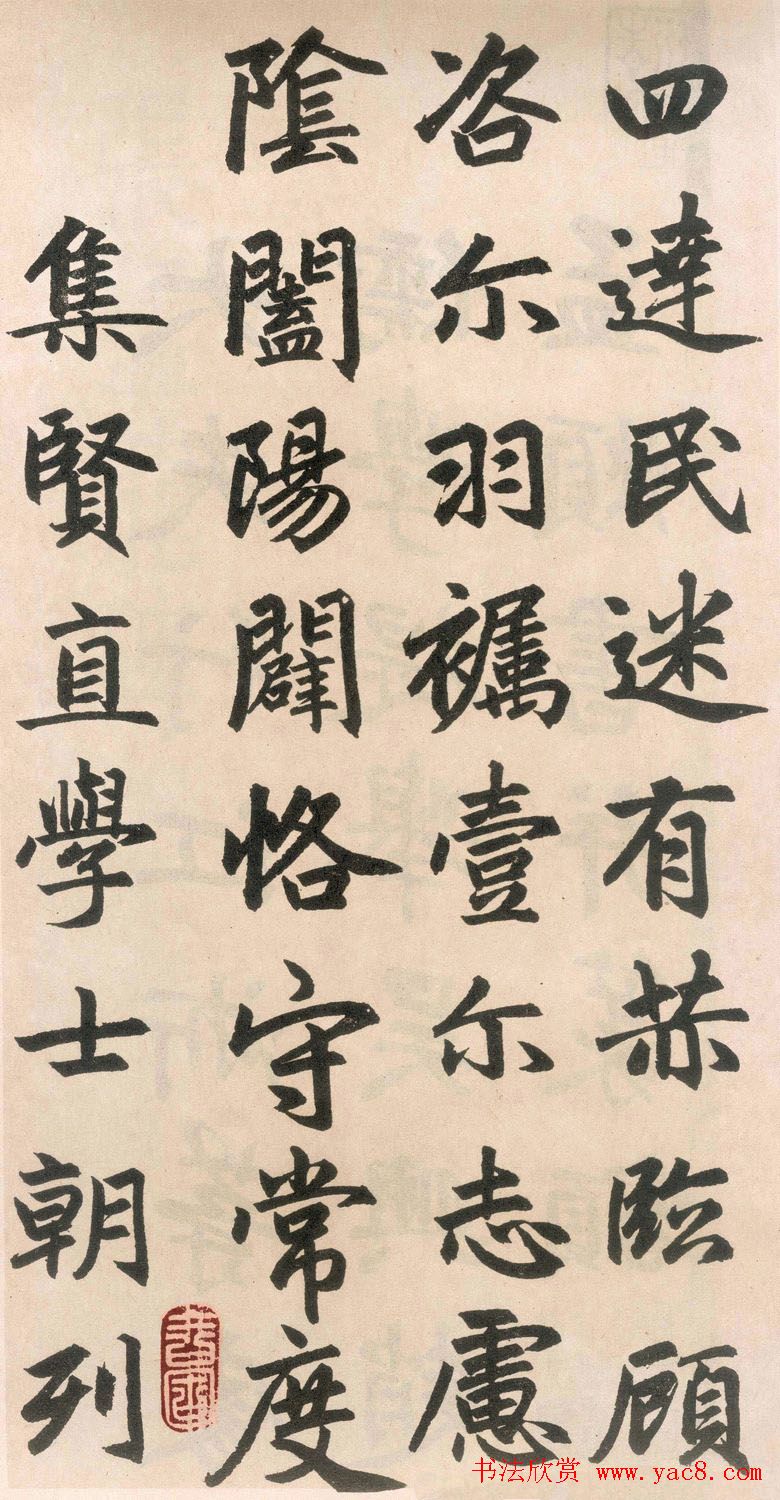 四達民迷有赫臨顧
咨尔羽壹尔志慮
陰闔陽闢恪守常度
集賢直學士朝列
书法欣赏 www.yac8.com